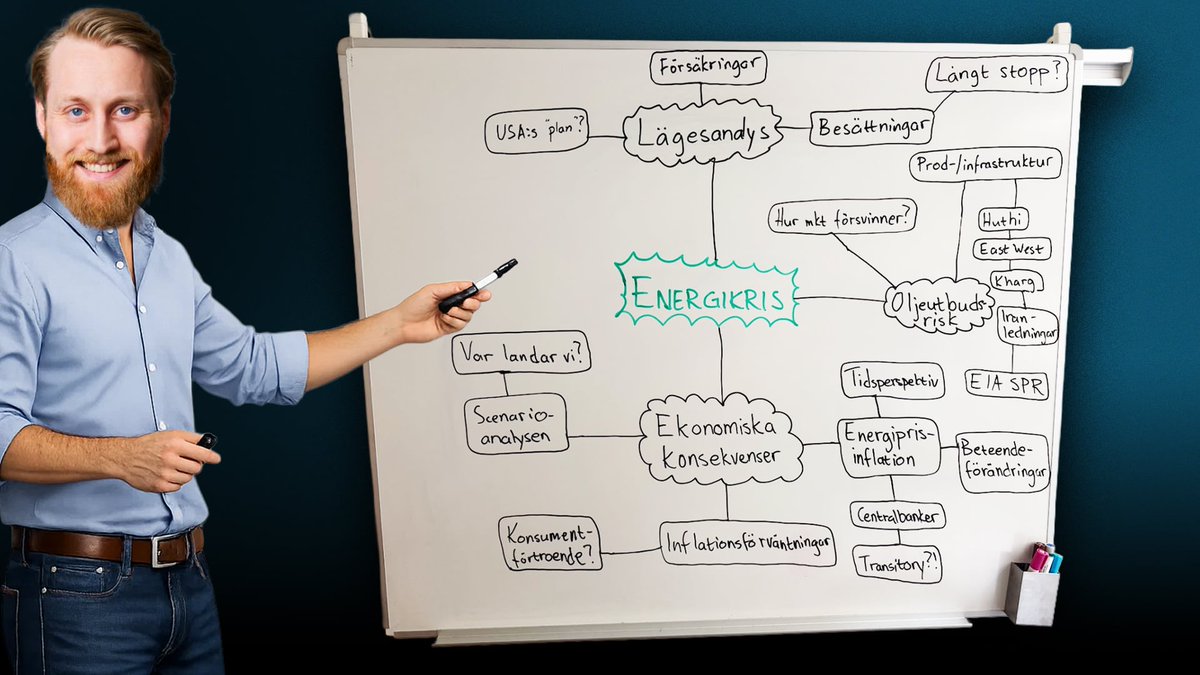 Försäkringar
Långt stopp?
USA:s "plan"?
Lägesandys
Besättningar
Prod-/infrastruktur
Hur mkt försvinner?
Huthi
East West
Kharg
Iran-
ledningar
EIA SPR
ENERGIKRIS
Oljeutbuds-
risk
Var landar vi?
Scenario-
analysen
Ekonomiska
konsekvenser
Tidsperspektiv
Energipris-
inflation
Beteende-
förändringar
Centralbanker
Transitory?!
Konsument-
förtroende?
Inflationsförväntningar